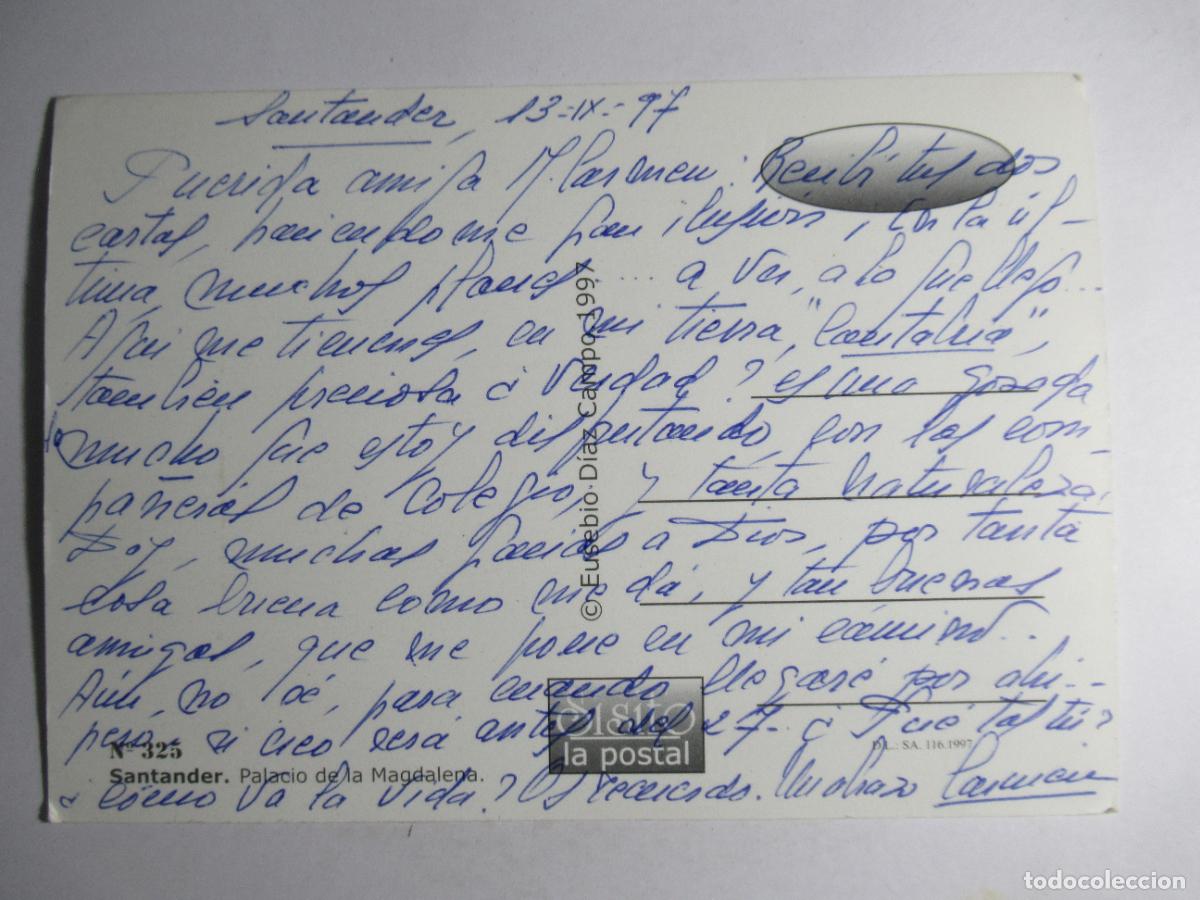 Santander, 13-IX-97
Querida amiga M. Carmen: Recibí tus dos
cartas, haciendome gran ilusión, con la úl-
tima, muchos planes... a ver, a lo que llego...
Aquí me tienenes, en mi tierra, "Cantabria",
tambien preciosa ¿ Verdad? es una gozada
lo mucho que estoy disfrutando, con las com
pañeras de Colegio, y tanta naturaleza.
Doy, muchas gracias a Dios, por tanta
cosa buena como me dá, y tan buenas
amigas, que me pone en mi camino..
Aún, no sé, para cuando llegaré por ahi..
pero si creo será antes del 27- ¿ Qué tal tú?
¿ Cómo va la vida? Os recuerdo. Un abrazo Carmen
© Eusebio Díaz Campo 1997
El sitio
la postal
Nº 325
Santander. Palacio de la Magdalena.
D.L.: SA. 116.1997
todocoleccion